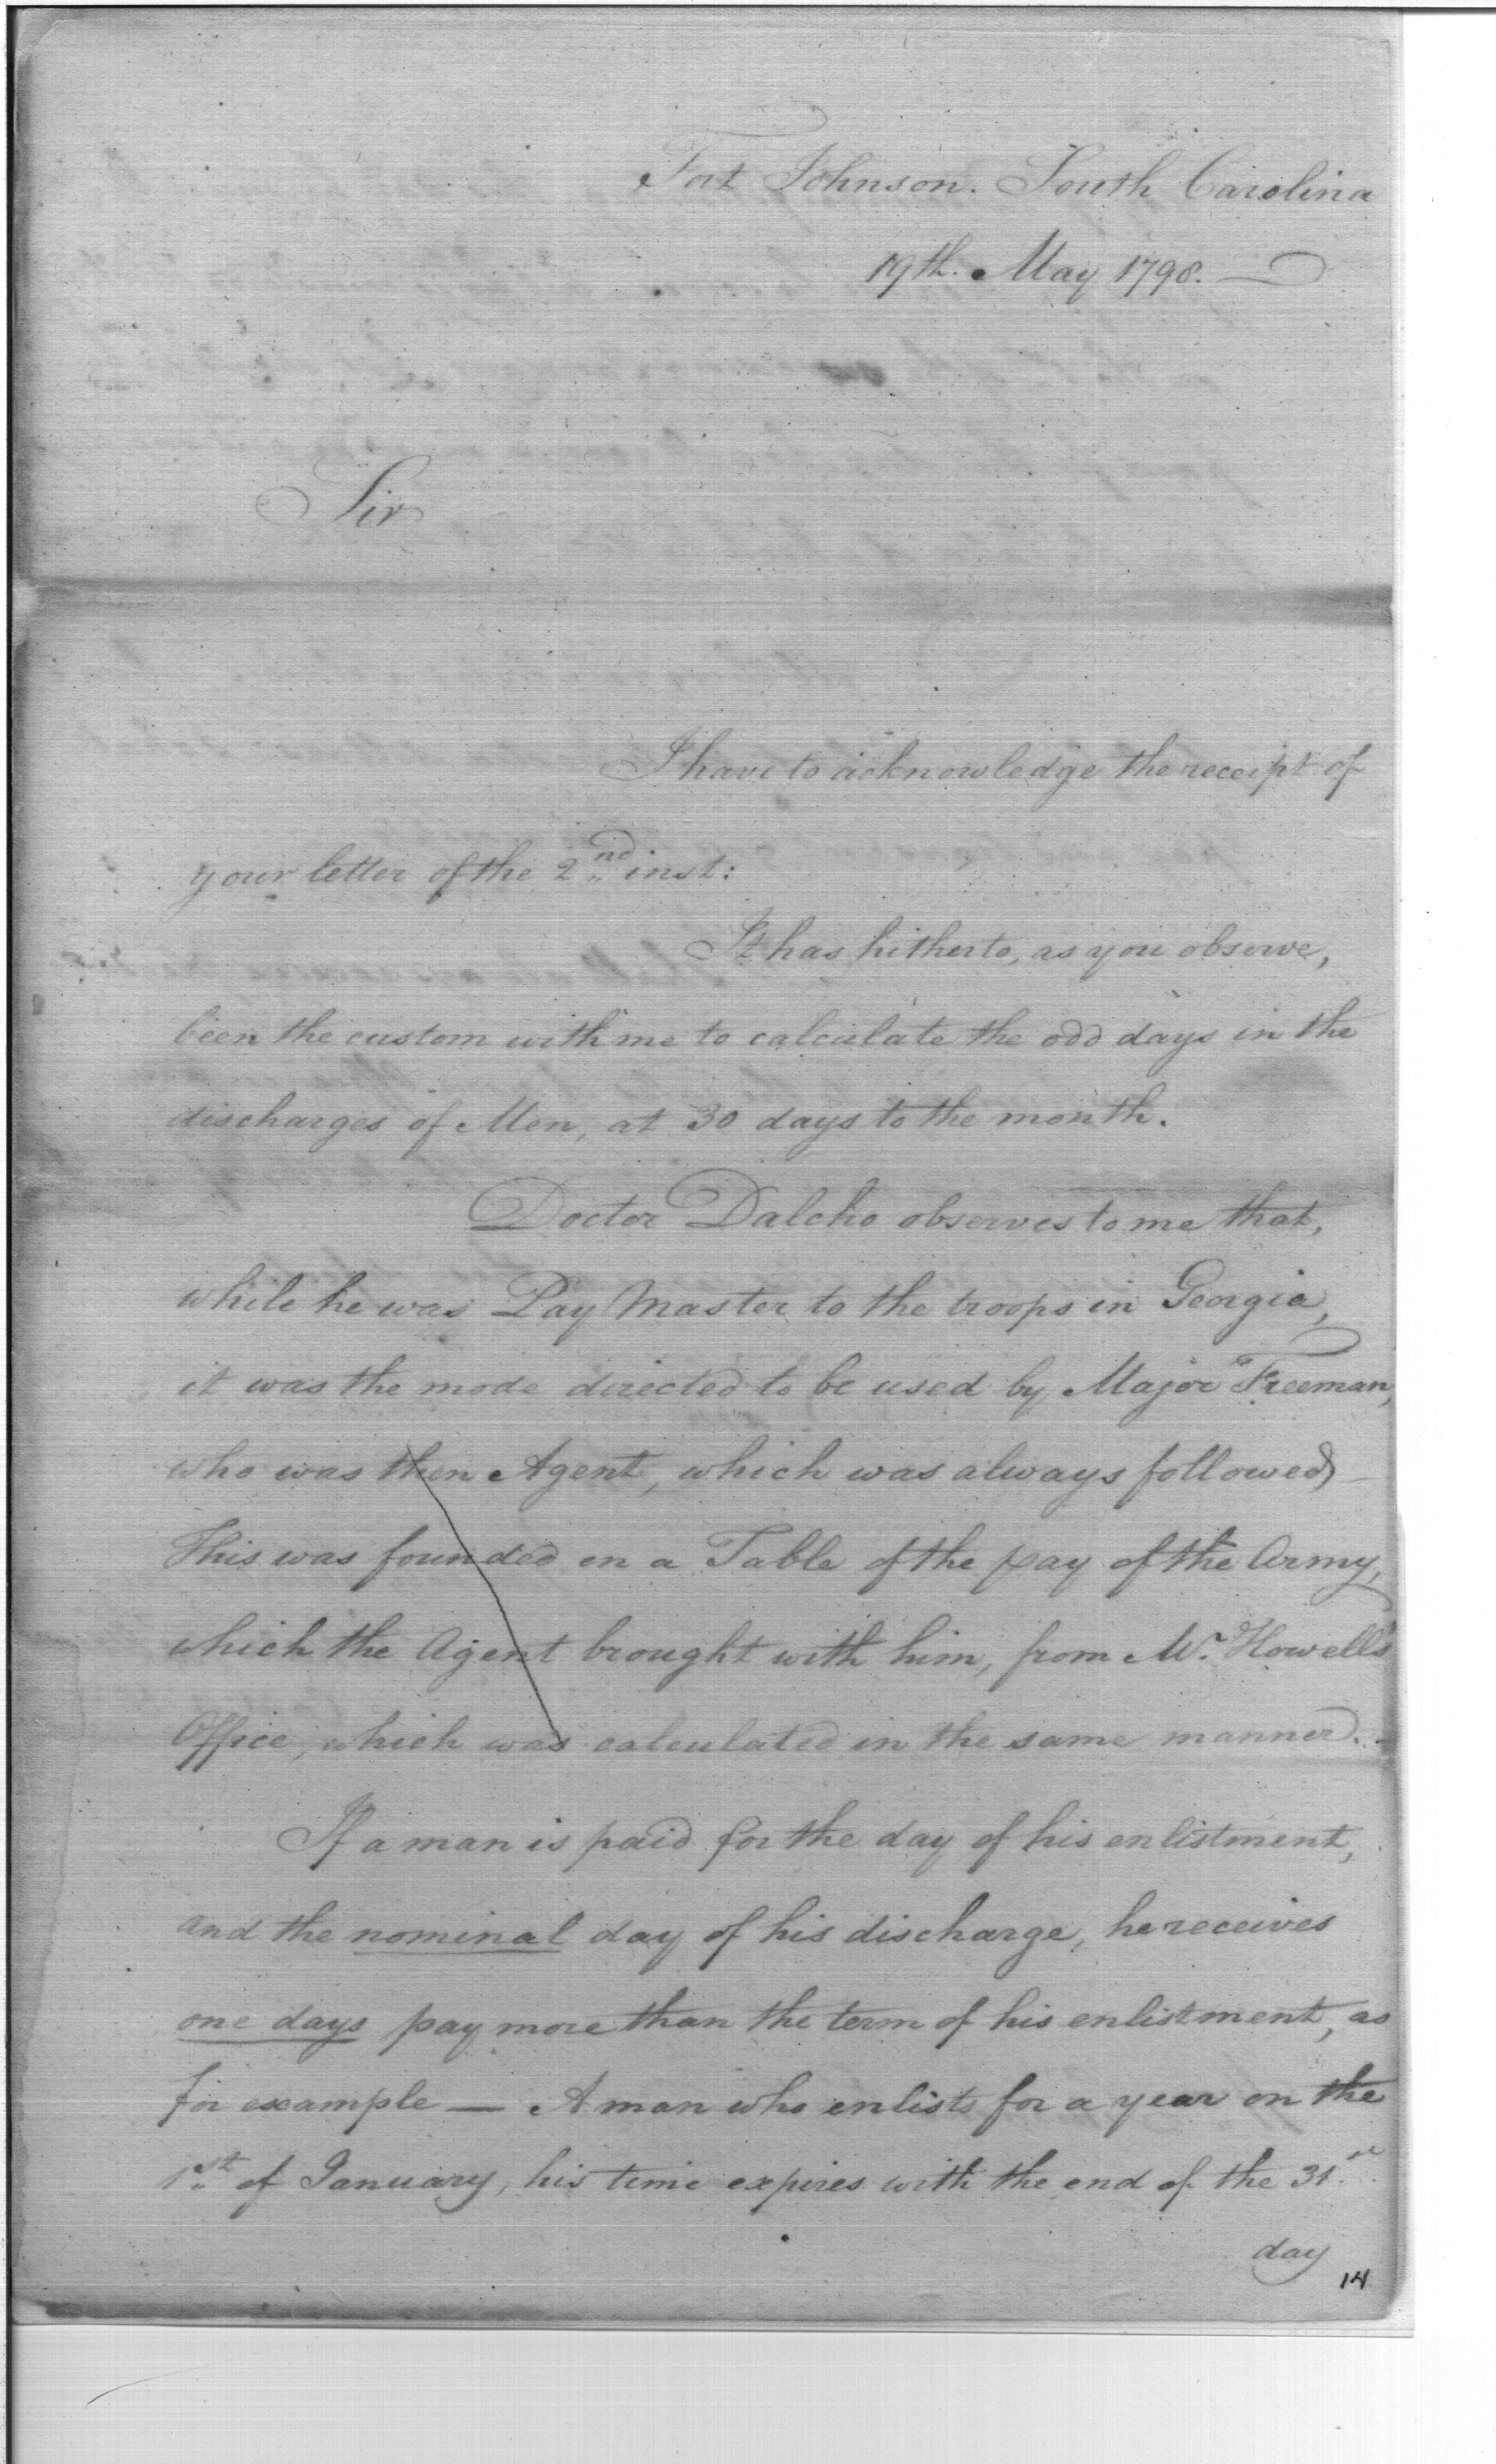 Fort Johnson. South Carolina
19th. May 1798.
Sir
I have to acknowledge the receipt of
your letter of the 2nd inst:
It has hitherto, as you observe,
been the custom with me to calculate the odd days in the
discharges of Men, at 30 days to the month.
Doctor Dalcho observes to me that,
while he was Pay Master to the troops in Georgia,
it was the mode directed to be used by Major Freeman,
who was then Agent, which was always followed
This was founded on a Table of the pay of the Army,
which the Agent brought with him, from Mr. Howell's
Office, which was calculated in the same manner.
If a man is paid for the day of his enlistment,
and the nominal day of his discharge, he receives
one days pay more than the term of his enlistment, as
for example — A man who enlists for a year on the
1st of January, his time expires with the end of the 31st
day
14